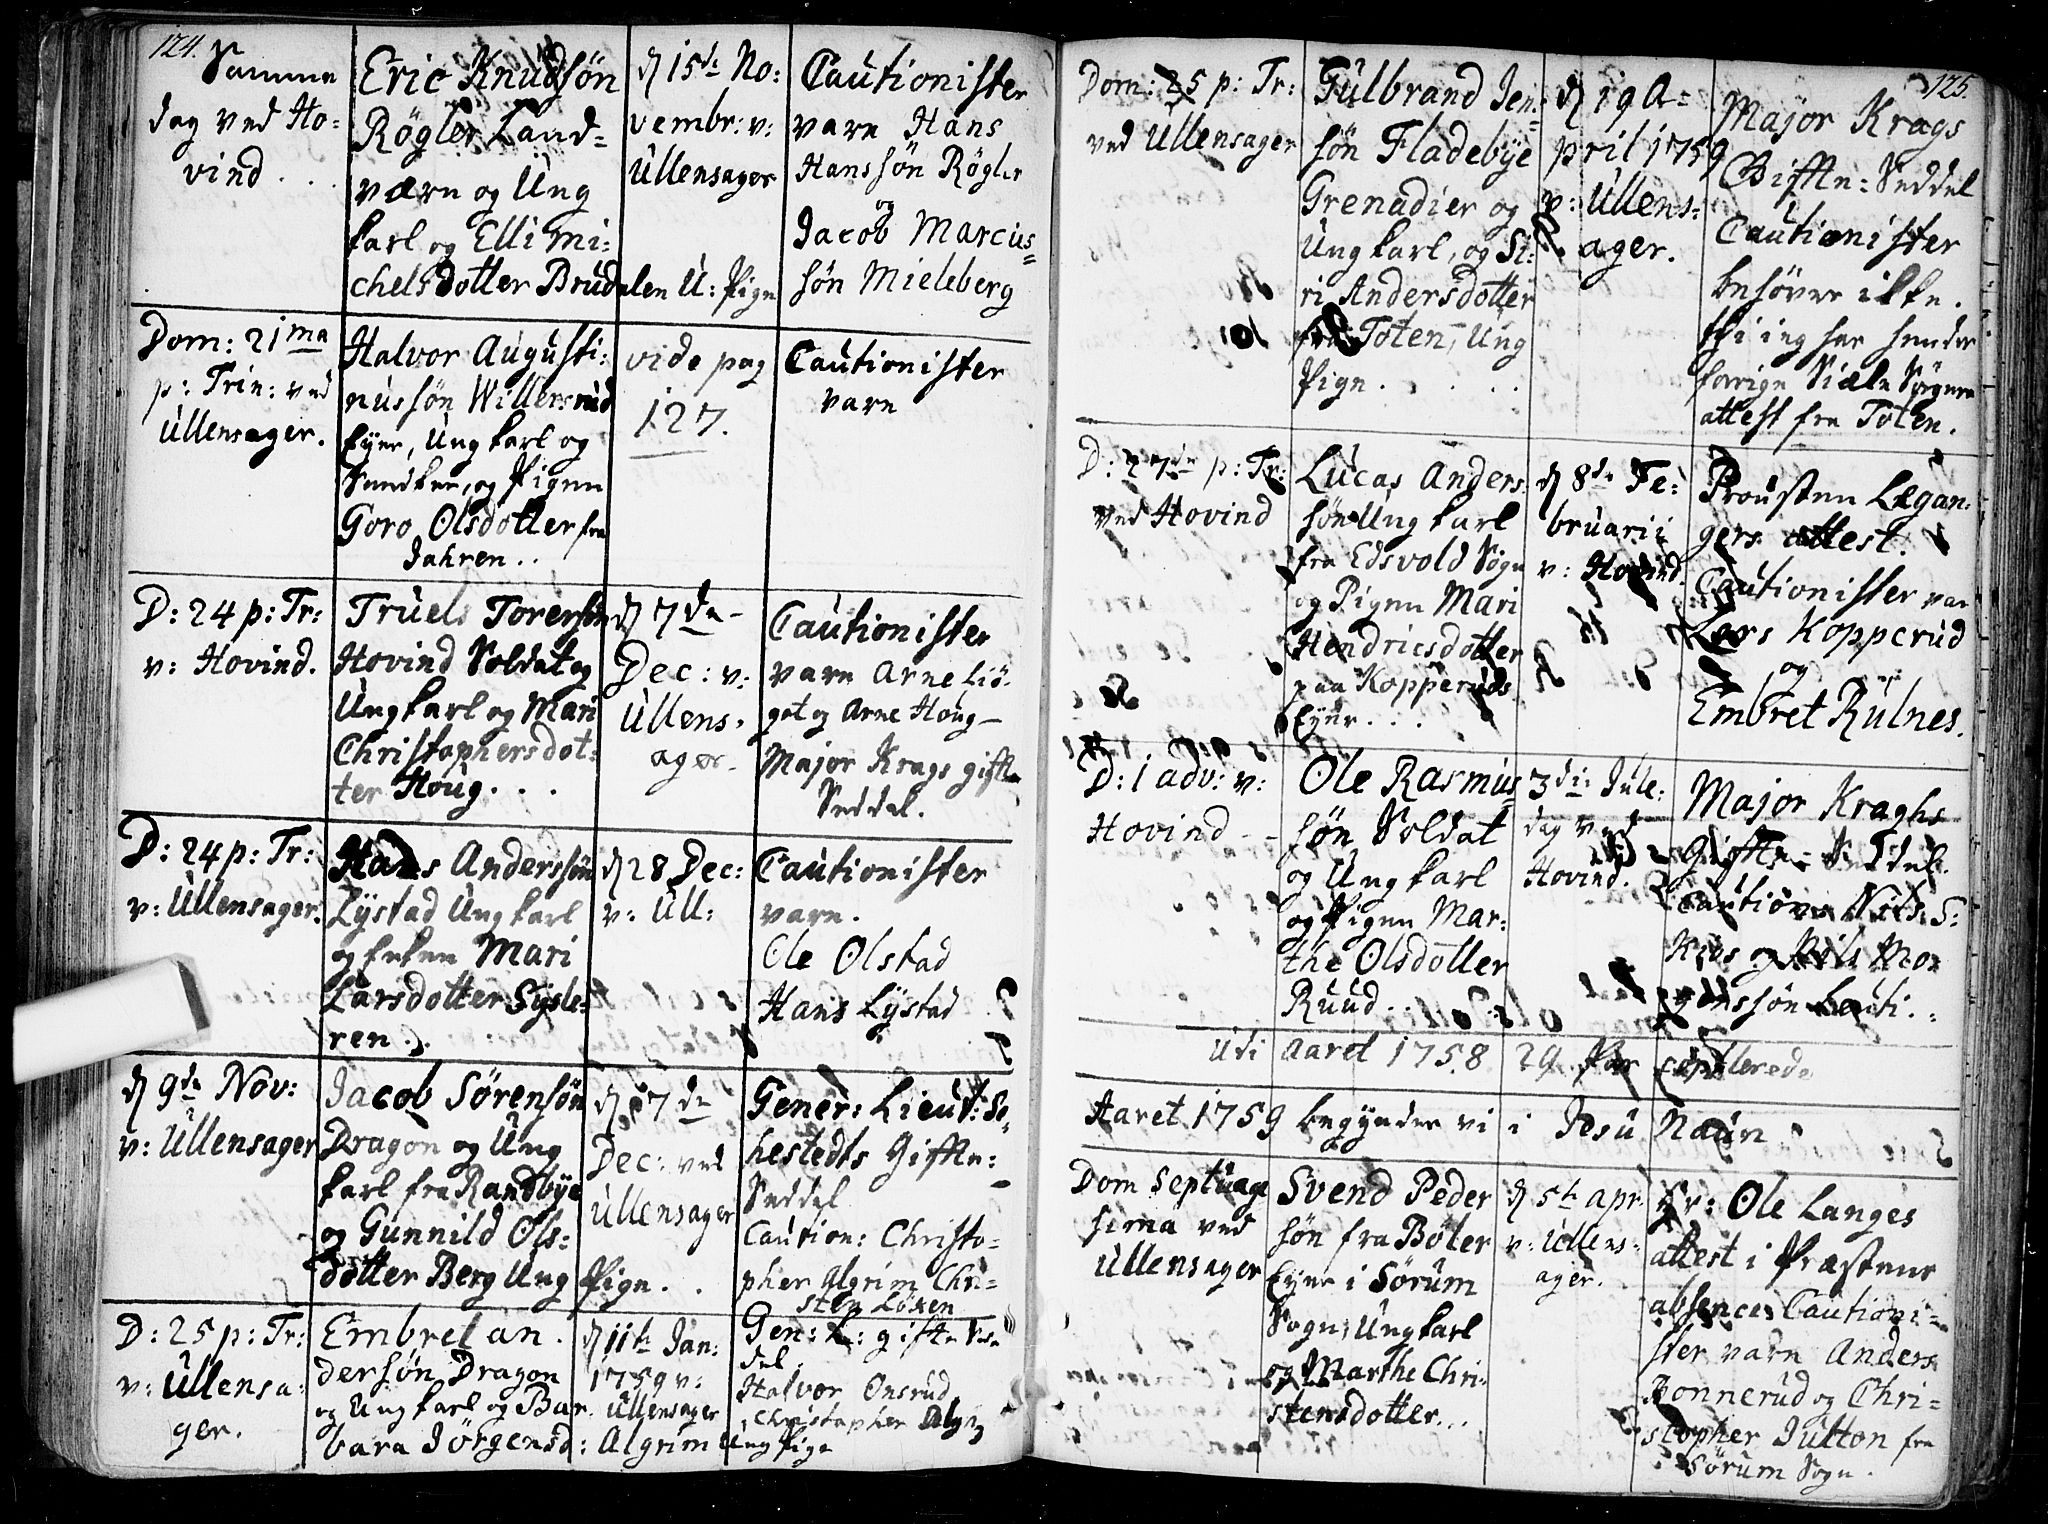 124.
Samme
dag ved Ho-
vind . . .
Eric Knudsøn
Røgler Land-
værn og Ung
karl og Elli Mi-
chelsdotter Brudalen U: Pige
d 15de No:
vembr: v:
Ullensager
Cautionister
vare Hans
Hanssøn Røgler
og
Jacob Marcus=
søn Mieleberg
Dom: 21ma
p: Trin: ved
Ullensager.
Halvor Augusti:
nussøn Willersrud
Eyer, Ung karl og
Enke, og Pigen
Goro Olsdotter fra
Jahren . .
vide pag
127.
Cautionister
vare
D: 24 p: Tr:
v: Hovind.
Truels Torersøn
Hovind Soldat og
Ung karl og Mari
Christophersdot-
ter Houg . . .
d 7de
Dec: v:
Ullens-
ager
Cautionister
vare Arne Liø-
got og Arne Houg
Major Krags gifte
Seddel.
D: 24 p: Tr:
v: Ullensager.
Hans Anderssøn
Lÿstad Ung karl
og Enken Mari
Larsdotter Sÿsle-
ren . .
d 28 Dec:
v: Ull:
Cautionister
vare.
Ole Olstad
Hans Lÿstad
d 9de Nov:
v: Ullensager
Jacob Sørensøn
Dragon og Ung
karl fra Randbÿe
og Gunnild Ols-
dotter Berg Ung Pige . .
d 7de
Dec: ved
Ullensager
Gener: Lieut: Se-
hestedts Gifte-
Seddel
Caution: Christo-
pher Algrim Chri-
sten Løken
D: 25 p: Tr:
v: Ullensa-
ger.
Embret An-
dersøn Dragon
og Ung karl og Bar-
bara Jørgensd: Algrim Ung Pige
d 11te Jan:
1759 v:
Ullensager
Gen: L: gifte Sed-
del.
Halvor Onsrud
Christopher Algrim
125.
Dom: 25 p: Tr:
ved Ullensager
Gulbrand Jen-
søn Fladebÿe
Grenadier og
Ung karl, og Si-
ri Andersdotter
fra Toten, Ung
Pige . . . .
d 19 A-
pril 1759
v: Ullens-
ager.
Major Krags
Gifte-Seddel
Cautionister
behøves ikke.
thi jeg har hendes
forrige Siæle Sørgers
attest fra Toten.
D: 27de p: Tr:
ved Hovind
Lucas Anders
søn Ung karl
fra Edsvold Sogn
og Pigen Mari
Hendricsdotter
paa Kopperuds
Eyer . . .
d 8de Fe-
bruarii
v: Hovind.
Prousten Legan-
gers attest.
Cautionister var
Lars Kopperud
og
Embret Rulnes.
D: 1 adv: v:
Hovind - -
Ole Rasmus
søn Soldat
og Ung karl
og Pigen Mar-
the Olsdotter
Ruud . .
3die Jule-
dag ved
Hovind.
Major Kraghs
Gifte-Seddel.
Caution: Nils S:
Kios og Nils Mor
tenssøn
Udi Aaret 1758 29 Par copulerede
Aaret 1759 begynder vi i Jesu Naun
Dom Septuage
sima ved
Ullensager
Svend Peder
søn fra Bøler
Eyer i Sørum
Sogn, Ung karl
og Marthe Chri-
stensdotter . . .
d 5te Apr.
v: Ullens-
ager.
Hr: Ole Langes
attest i Præstens
absence. Cautioni-
ster vare Anders
Bonnerud og Chri-
stopher Julton fra
Sørum Sogn.